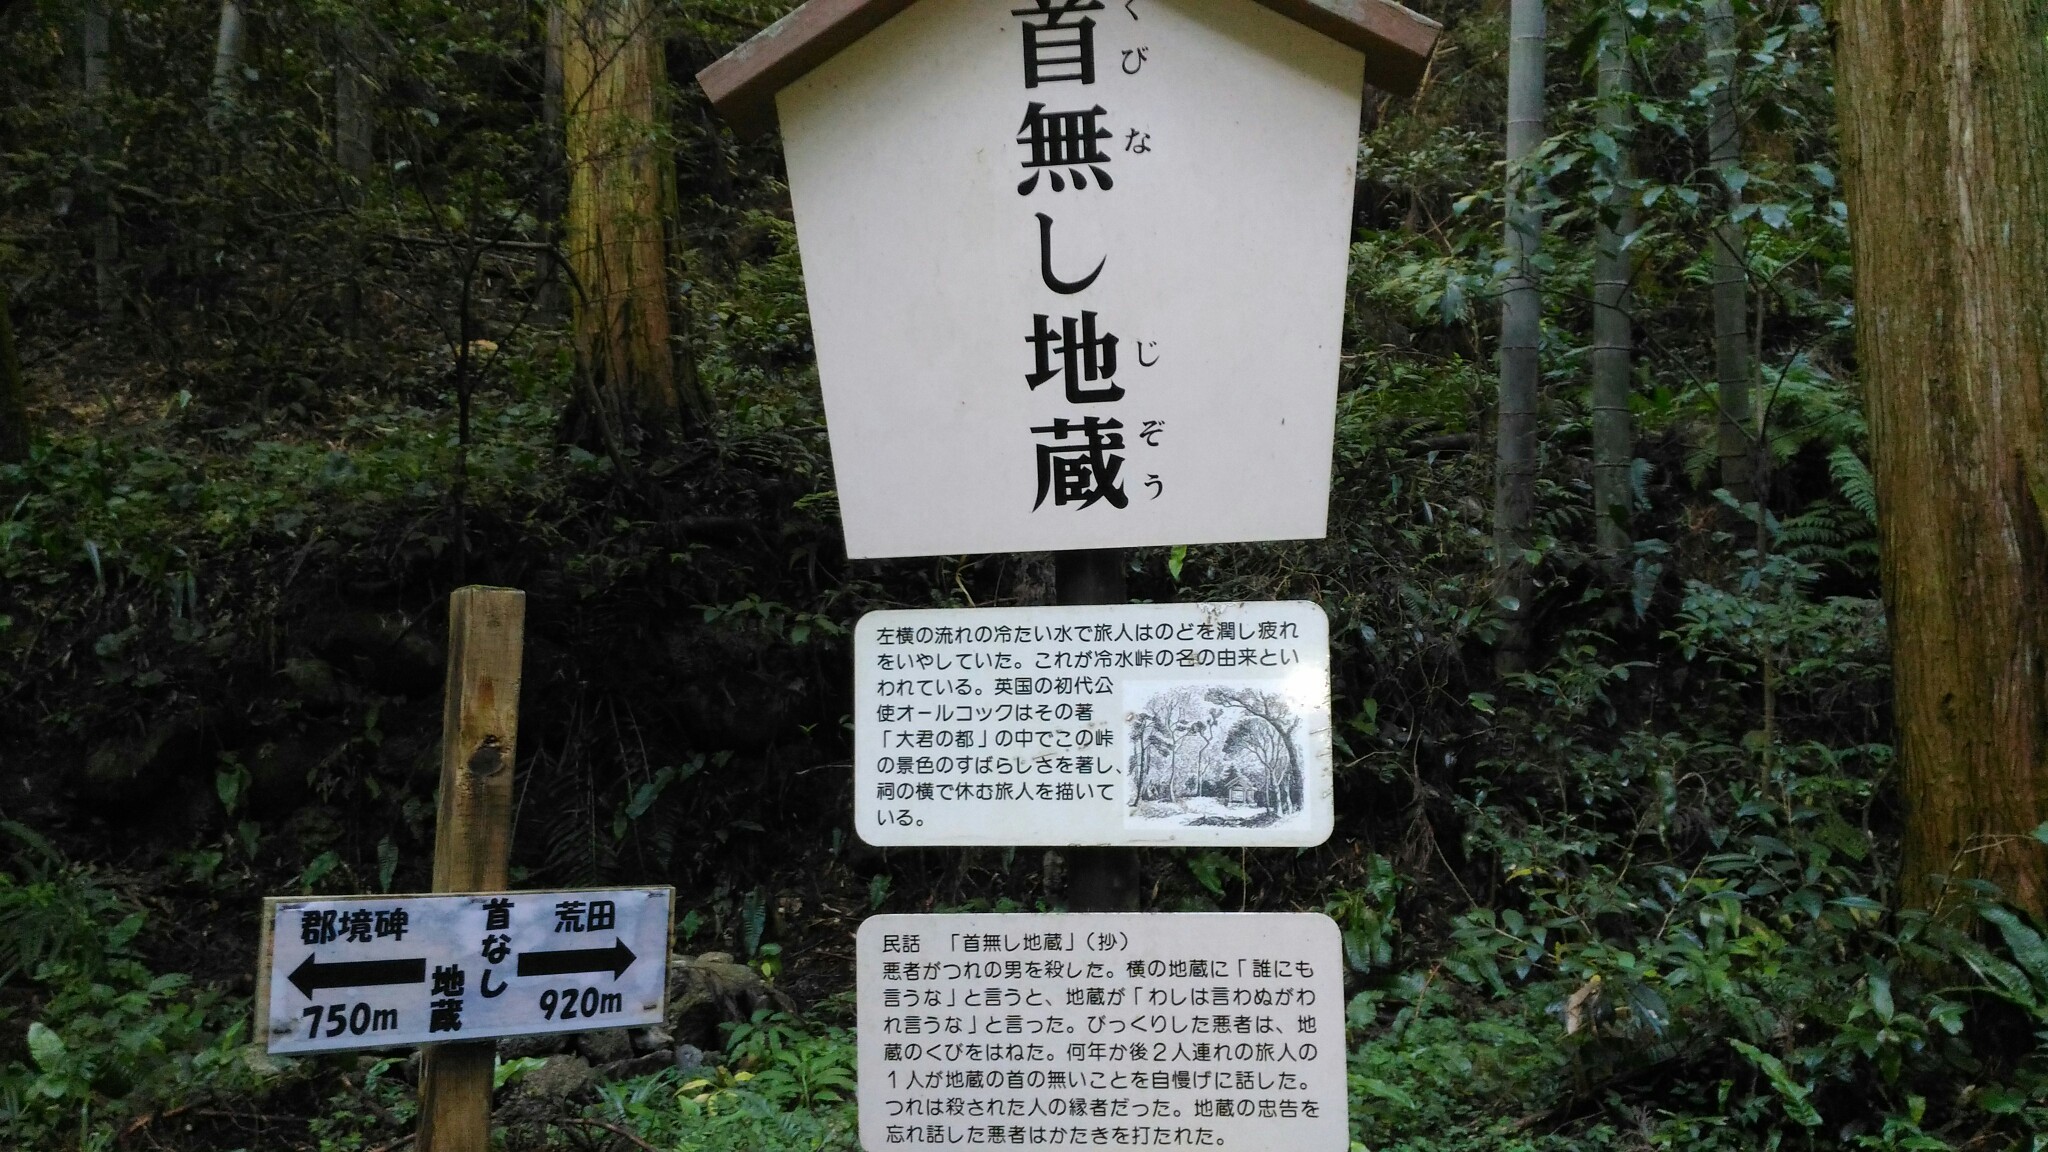 首無し地蔵
くびな
じぞう
左横の流れの冷たい水で旅人はのどを潤し疲れ
をいやしていた。これが冷水峠の名の由来とい
われている。英国の初代公
使オールコックはその著
「大君の都」の中でこの峠
の景色のすばらしさを著し、
祠の横で休む旅人を描いて
いる。
民話 「首無し地蔵」(抄)
悪者がつれの男を殺した。横の地蔵に「誰にも
言うな」と言うと、地蔵が「わしは言わぬがわ
れ言うな」と言った。びっくりした悪者は、地
蔵のくびをはねた。何年か後2人連れの旅人の
1人が地蔵の首の無いことを自慢げに話した。
つれは殺された人の縁者だった。地蔵の忠告を
忘れ話した悪者はかたきを打たれた。
郡境碑
750m
首なし
地蔵
荒田
920m